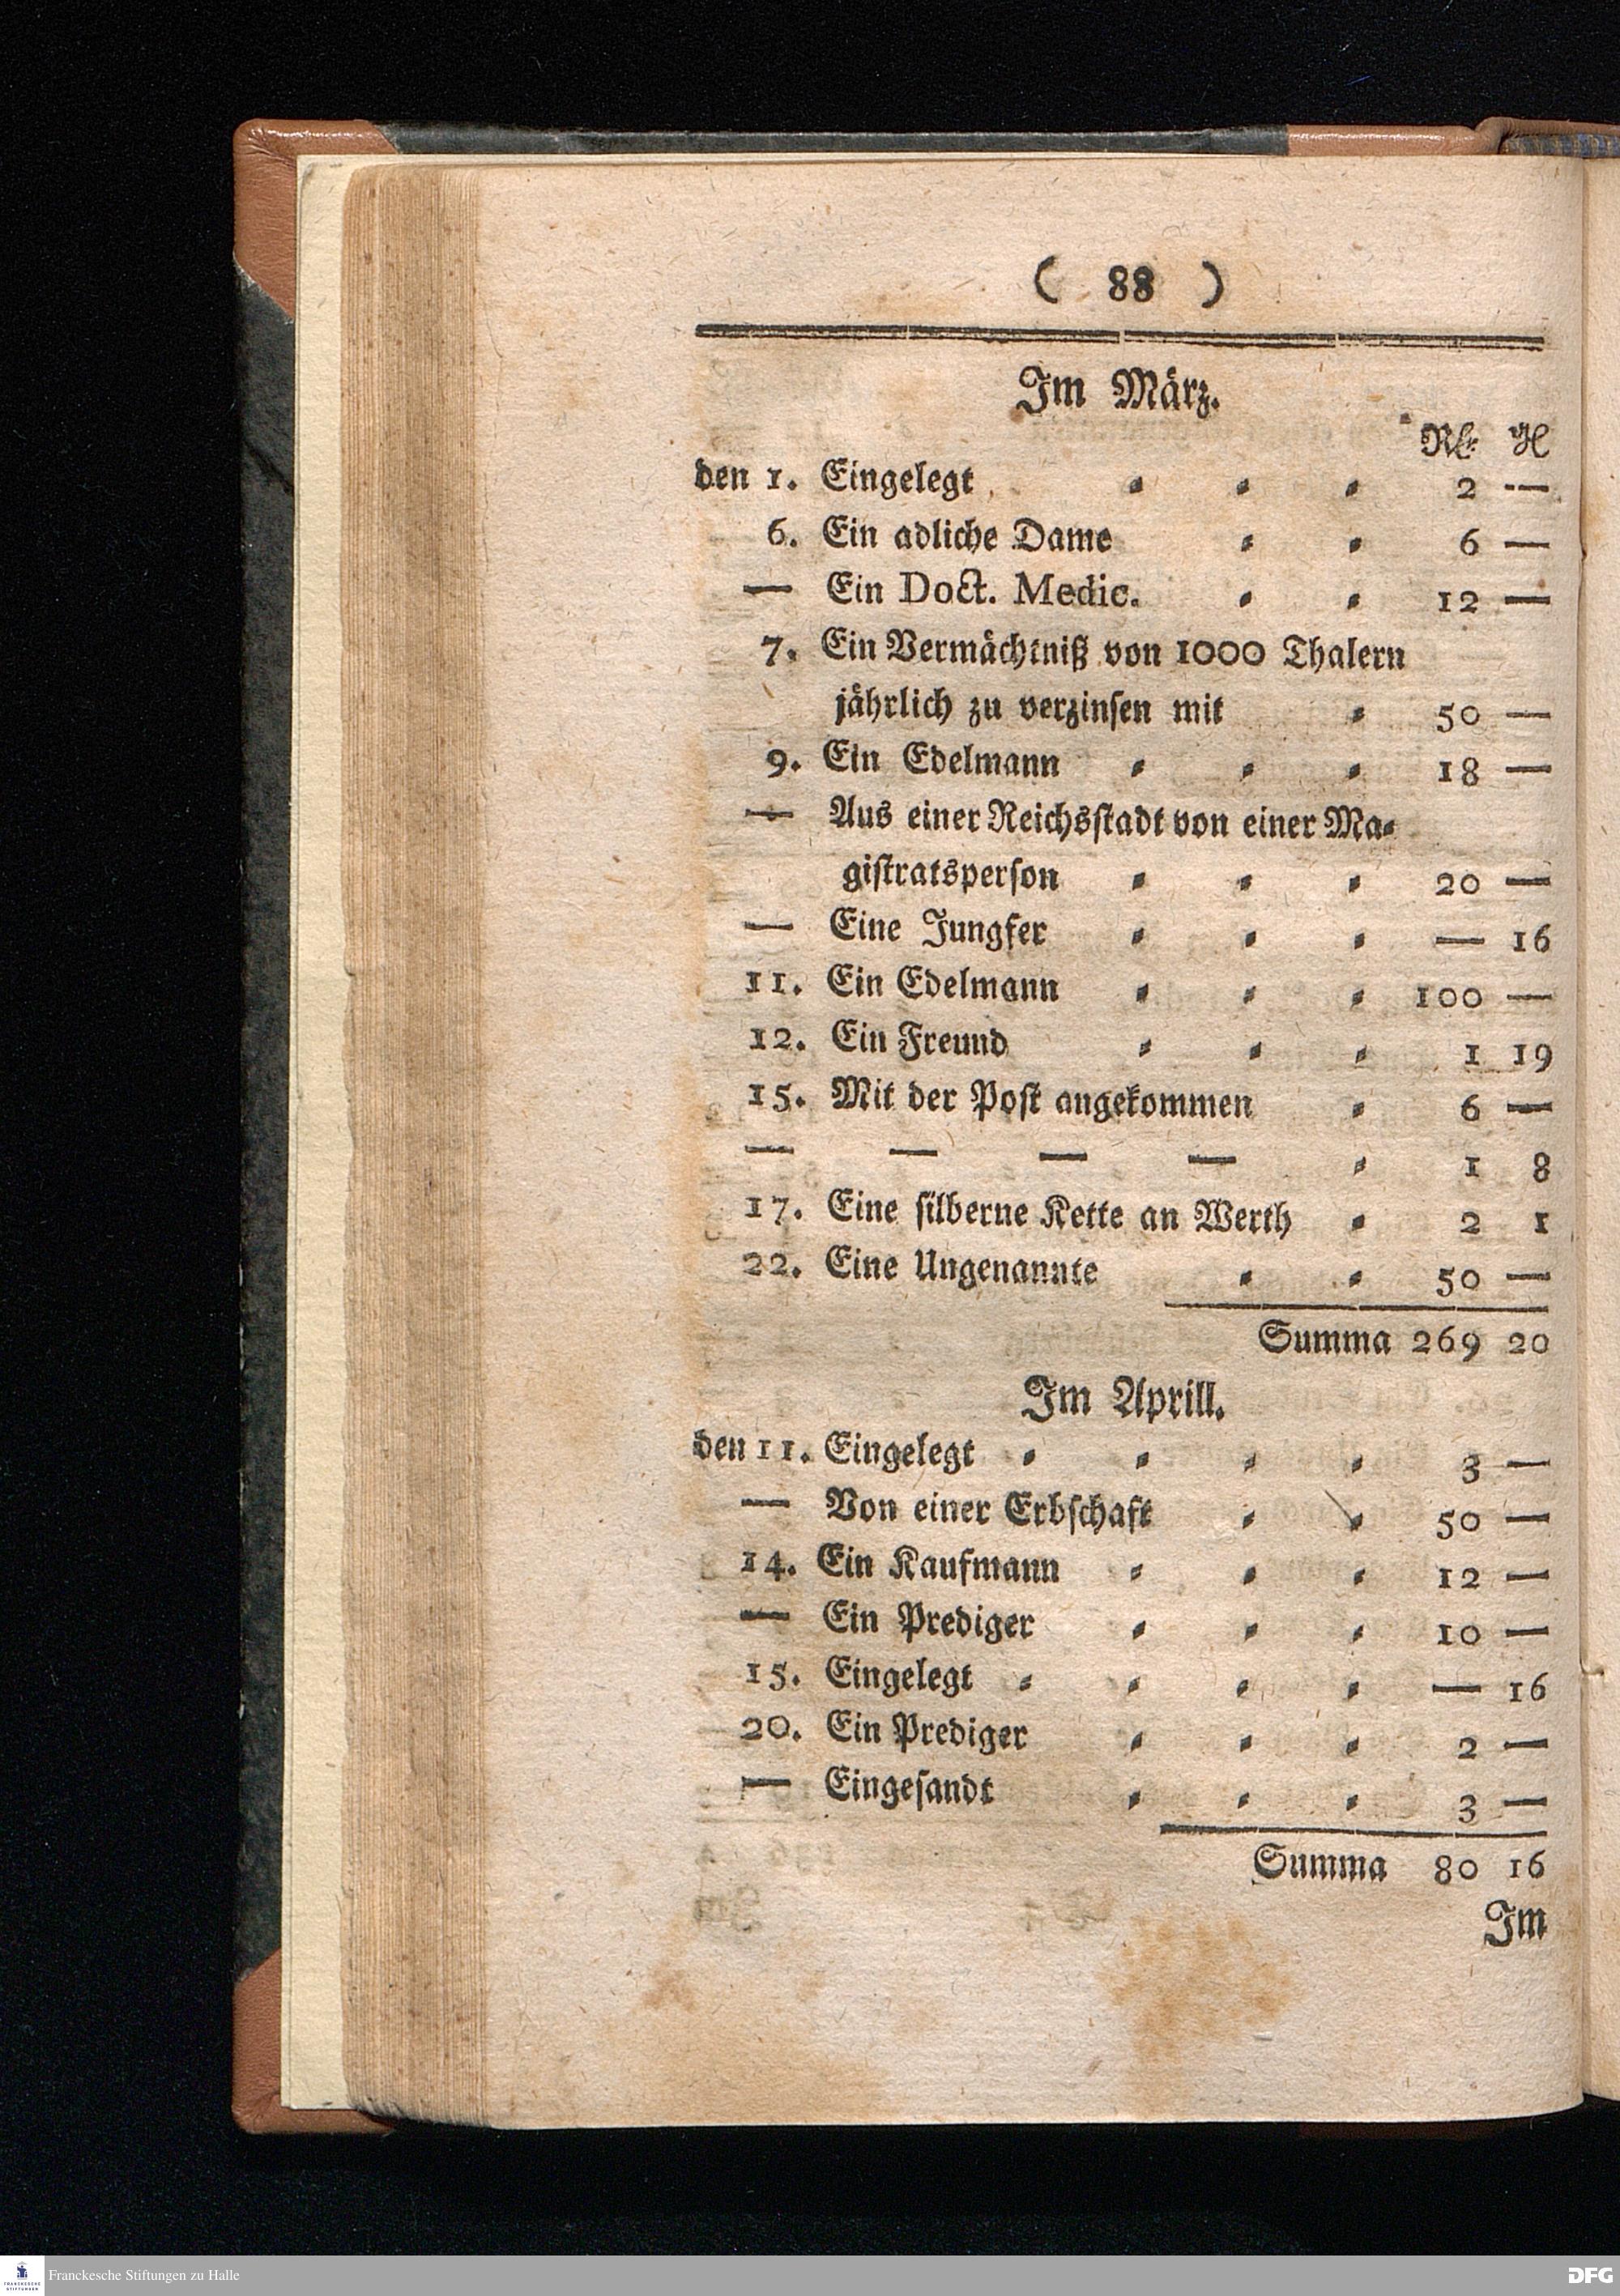 ( 88 )
Im März.
Rl. gl
den 1. Eingelegt = = = 2 —
6. Ein adliche Dame = = 6 —
— Ein Doct. Medic. = = 12 —
7. Ein Vermächtniß von 1000 Thalern
jährlich zu verzinsen mit = 50 —
9. Ein Edelmann = = = 18 —
— Aus einer Reichsstadt von einer Ma=
gistratsperson = = = 20 —
— Eine Jungfer = = = — 16
11. Ein Edelmann = = = 100 —
12. Ein Freund = = = 1 19
15. Mit der Post angekommen = 6 —
— — — — = 1 8
17. Eine silberne Kette an Werth = 2 1
22. Eine Ungenannte = = 50 —
Summa 269 20
Im Aprill.
den 11. Eingelegt = = = = 3 —
— Von einer Erbschaft = = 50 —
14. Ein Kaufmann = = = 12 —
— Ein Prediger = = = 10 —
15. Eingelegt = = = = — 16
20. Ein Prediger = = = 2 —
— Eingesandt = = = 3 —
Summa 80 16
Im
FRANCKESCHE STIFTUNGEN
Franckesche Stiftungen zu Halle
DFG